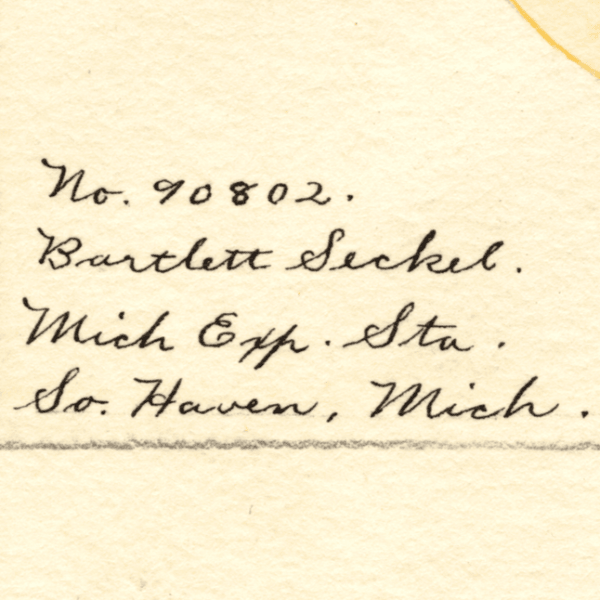 No. 90802.
Bartlett Seckel.
Mich Exp. Sta.
So. Haven, Mich.